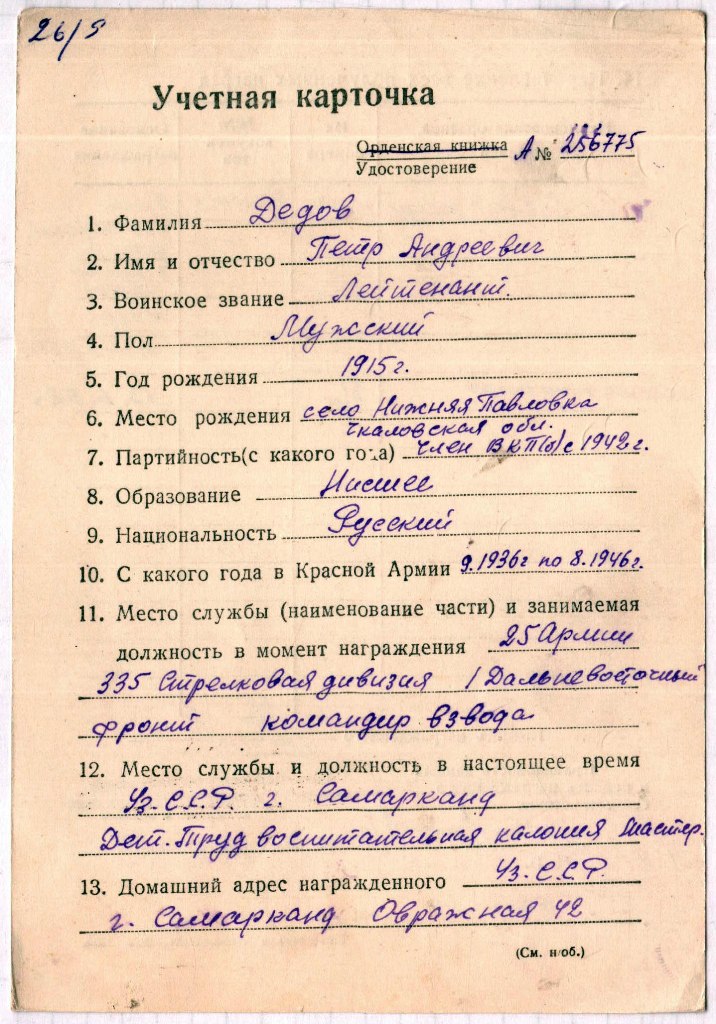 26/5
Учетная карточка
Орденская книжка
Удостоверение А № 256775
1. Фамилия Дедов
2. Имя и отчество Петр Андреевич
3. Воинское звание Лейтенант.
4. Пол Мужсский
5. Год рождения 1915г.
6. Место рождения село Нижняя Павловка
Чкаловская обл.
7. Партийность(с какого года) член ВКП(б) с 1942г.
8. Образование Нисшее
9. Национальность Русский
10. С какого года в Красной Армии 9.1936г по 8.1946г.
11. Место службы (наименование части) и занимаемая
должность в момент награждения 25 Армии
335 Стрелковая дивизия 1 Дальневосточный
фронт командир взвода
12. Место службы и должность в настоящее время
Уз.С.С.Р. г. Самарканд
Дет. Труд воспитательная калония Мастер.
13. Домашний адрес награжденного Уз.С.С.Р.
г. Самарканд Овражная 42
(См. н/об.)